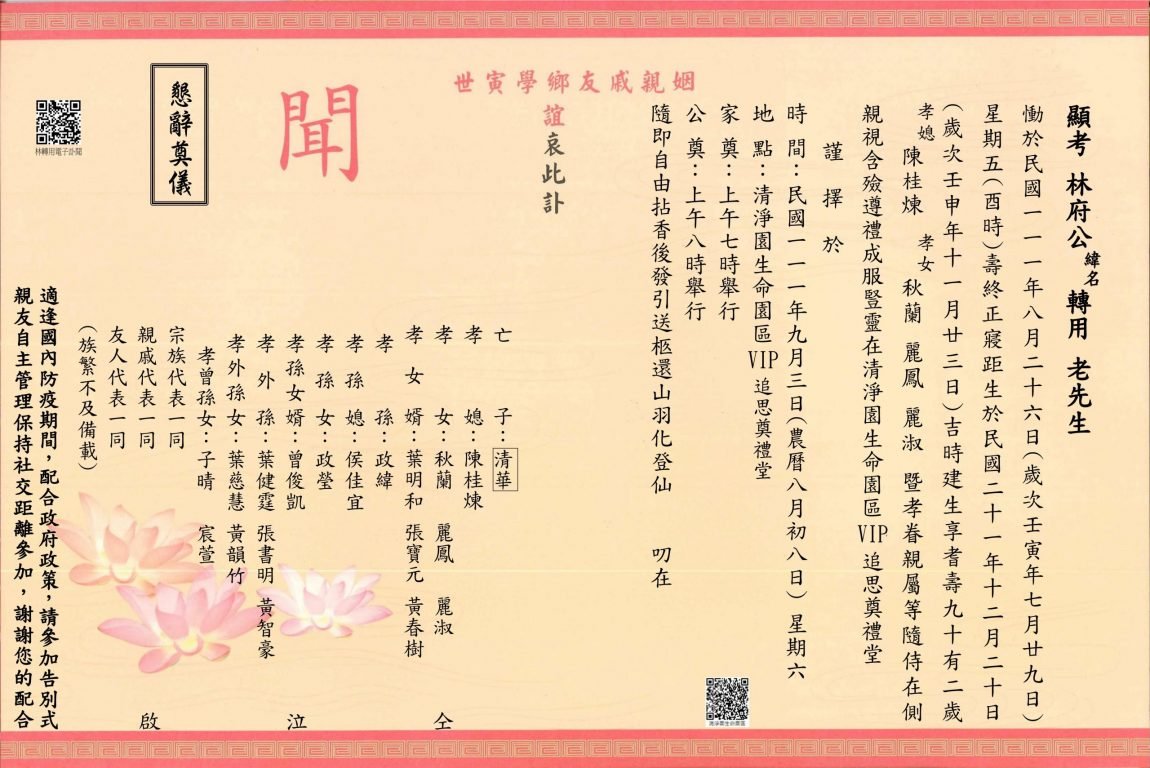 顯考 林府公 緯名 轉用 老先生
慟於民國一一一年八月二十六日(歲次壬寅年七月廿九日)
星期五(酉時)壽終正寢距生於民國二十一年十二月二十日
(歲次壬申年十一月廿三日)吉時建生享耆壽九十有二歲
孝媳 陳桂煉 孝女 秋蘭 麗鳳 麗淑 暨孝眷親屬等隨侍在側
親視含殮遵禮成服豎靈在清淨園生命園區VIP追思奠禮堂
謹擇於
時間:民國一一一年九月三日(農曆八月初八日)星期六
地點:清淨園生命園區VIP追思奠禮堂
家奠:上午七時舉行
公奠:上午八時舉行
隨即自由拈香後發引送柩還山羽化登仙 叨在
姻親戚友鄉學寅世
誼哀此訃
聞
亡子:清華
孝媳:陳桂煉
孝女:秋蘭 麗鳳 麗淑 仝
孝女婿:葉明和 張寶元 黃春樹
孝孫:政緯
孝孫媳:侯佳宜
孝孫女:政瑩
孝孫女婿:曾俊凱 泣
孝外孫:葉健霆 張書明 黃智豪
孝外孫女:葉慈慧 黃韻竹
孝曾孫女:子晴 宸萱
宗族代表一同
親戚代表一同 啟
友人代表一同
(族繁不及備載)
懇辭奠儀
林轉用電子訃聞
適逢國內防疫期間,配合政府政策,請參加告別式
親友自主管理保持社交距離參加,謝謝您的配合
清淨園生命園區